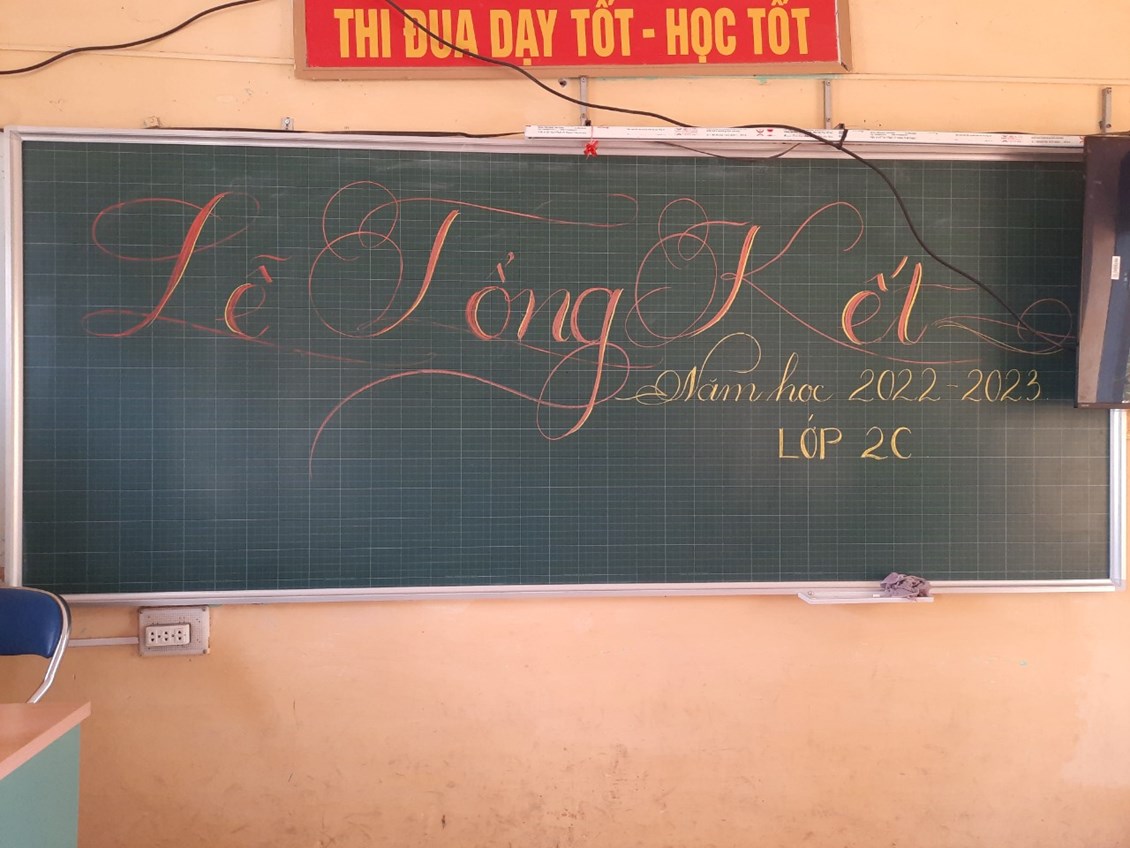 THI ĐUA DẠY TỐT - HỌC TỐT
Lễ Tổng Kết
Năm học 2022-2023
LỚP 2C